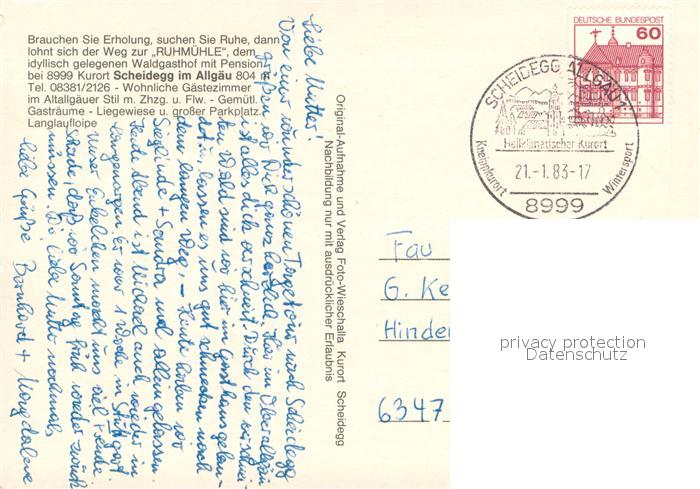 Brauchen Sie Erholung, suchen Sie Ruhe, dann
lohnt sich der Weg zur „RUHMÜHLE", dem
idyllisch gelegenen Waldgasthof mit Pension
bei 8999 Kurort Scheidegg im Allgäu 804 m
Tel. 08381/2126 - Wohnliche Gästezimmer
im Altallgäuer Stil m. Zhzg. u. Flw. - Gemütl.
Gasträume - Liegewiese u. großer Parkplatz
Langlaufloipe
Liebe Mutter!
Von einer wunderschönen Tour nach Scheidegg
grüßen wir Dich ganz herzlich. Hier im Oberallgäu
ist alles dick verschneit. Durch den verschnei-
ten Wald sind wir hier im Gasthaus gelan-
det u. lassen es uns gut schmecken nach
dem langen Weg. - Heute haben wir
Sieglinde + Sandra mal allein gelassen.
Heute Abend ist Michael auch wieder
Er war 1 Woche in Stuttgart.
Unser Enkelchen macht uns viel Freude.
Schade, daß wir Sonntag früh wieder zurück
müssen. Dir liebe Mutter nochmals
liebe Grüße Bernhard + Magdalene
Original-Aufnahme und Verlag Foto-Wieschalla Kurort Scheidegg
Nachbildung nur mit ausdrücklicher Erlaubnis
DEUTSCHE BUNDESPOST
60
SCHEIDEGG, ALLGÄU 1
Heilklimatischer Kurort
Kneippkurort
Wintersport
21.-1.83-17
8999
Fau
G. Ke
Hinder
6347
privacy protection
Datenschutz